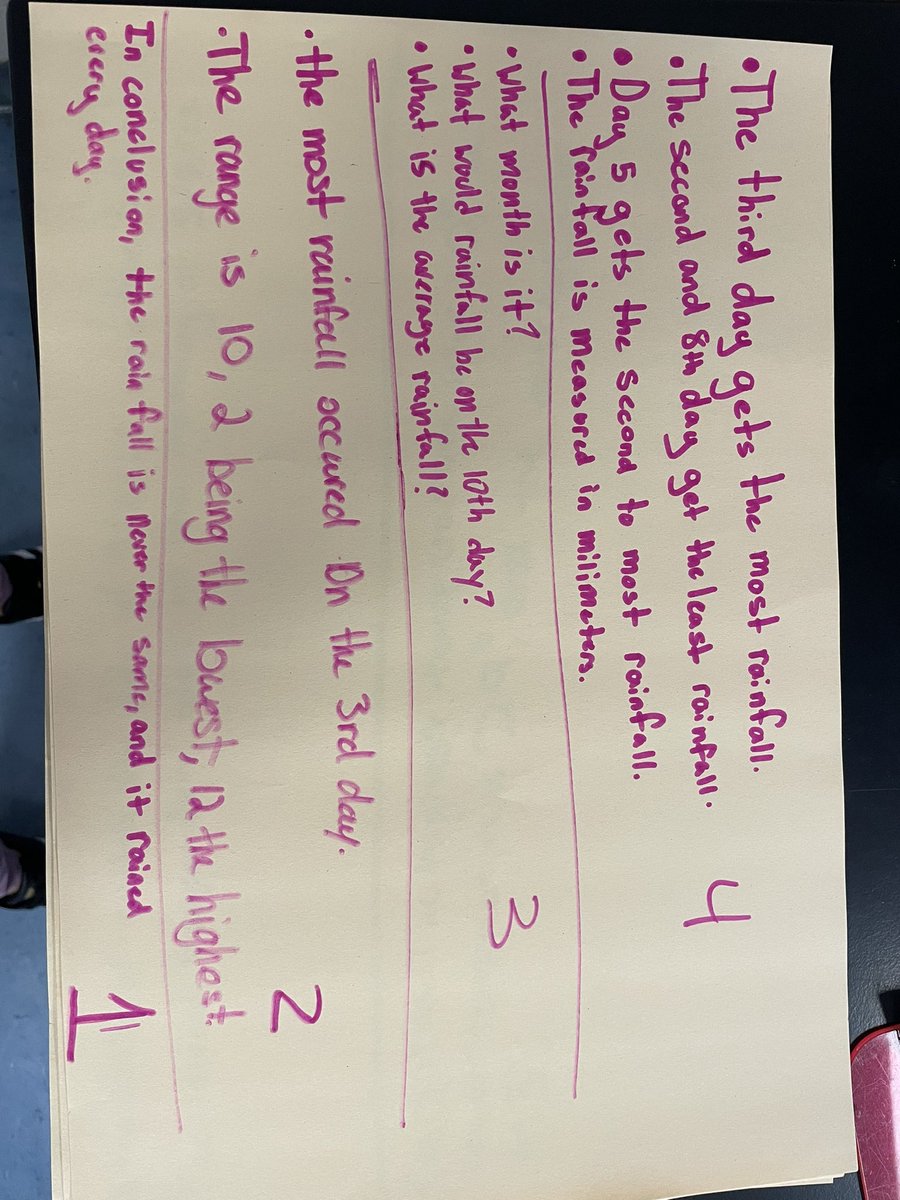 • The third day gets the most rainfall.
• The second and 8th day get the least rainfall.
• Day 5 gets the second to most rainfall.
• The rainfall is measured in milimeters.
4
• What month is it?
• What would rainfall be on the 10th day?
• What is the average rainfall?
3
• the most rainfall occured on the 3rd day.
• The range is 10, 2 being the lowest, 12 the highest.
2
In conclusion, the rain fall is never the same, and it rained
every day.
1